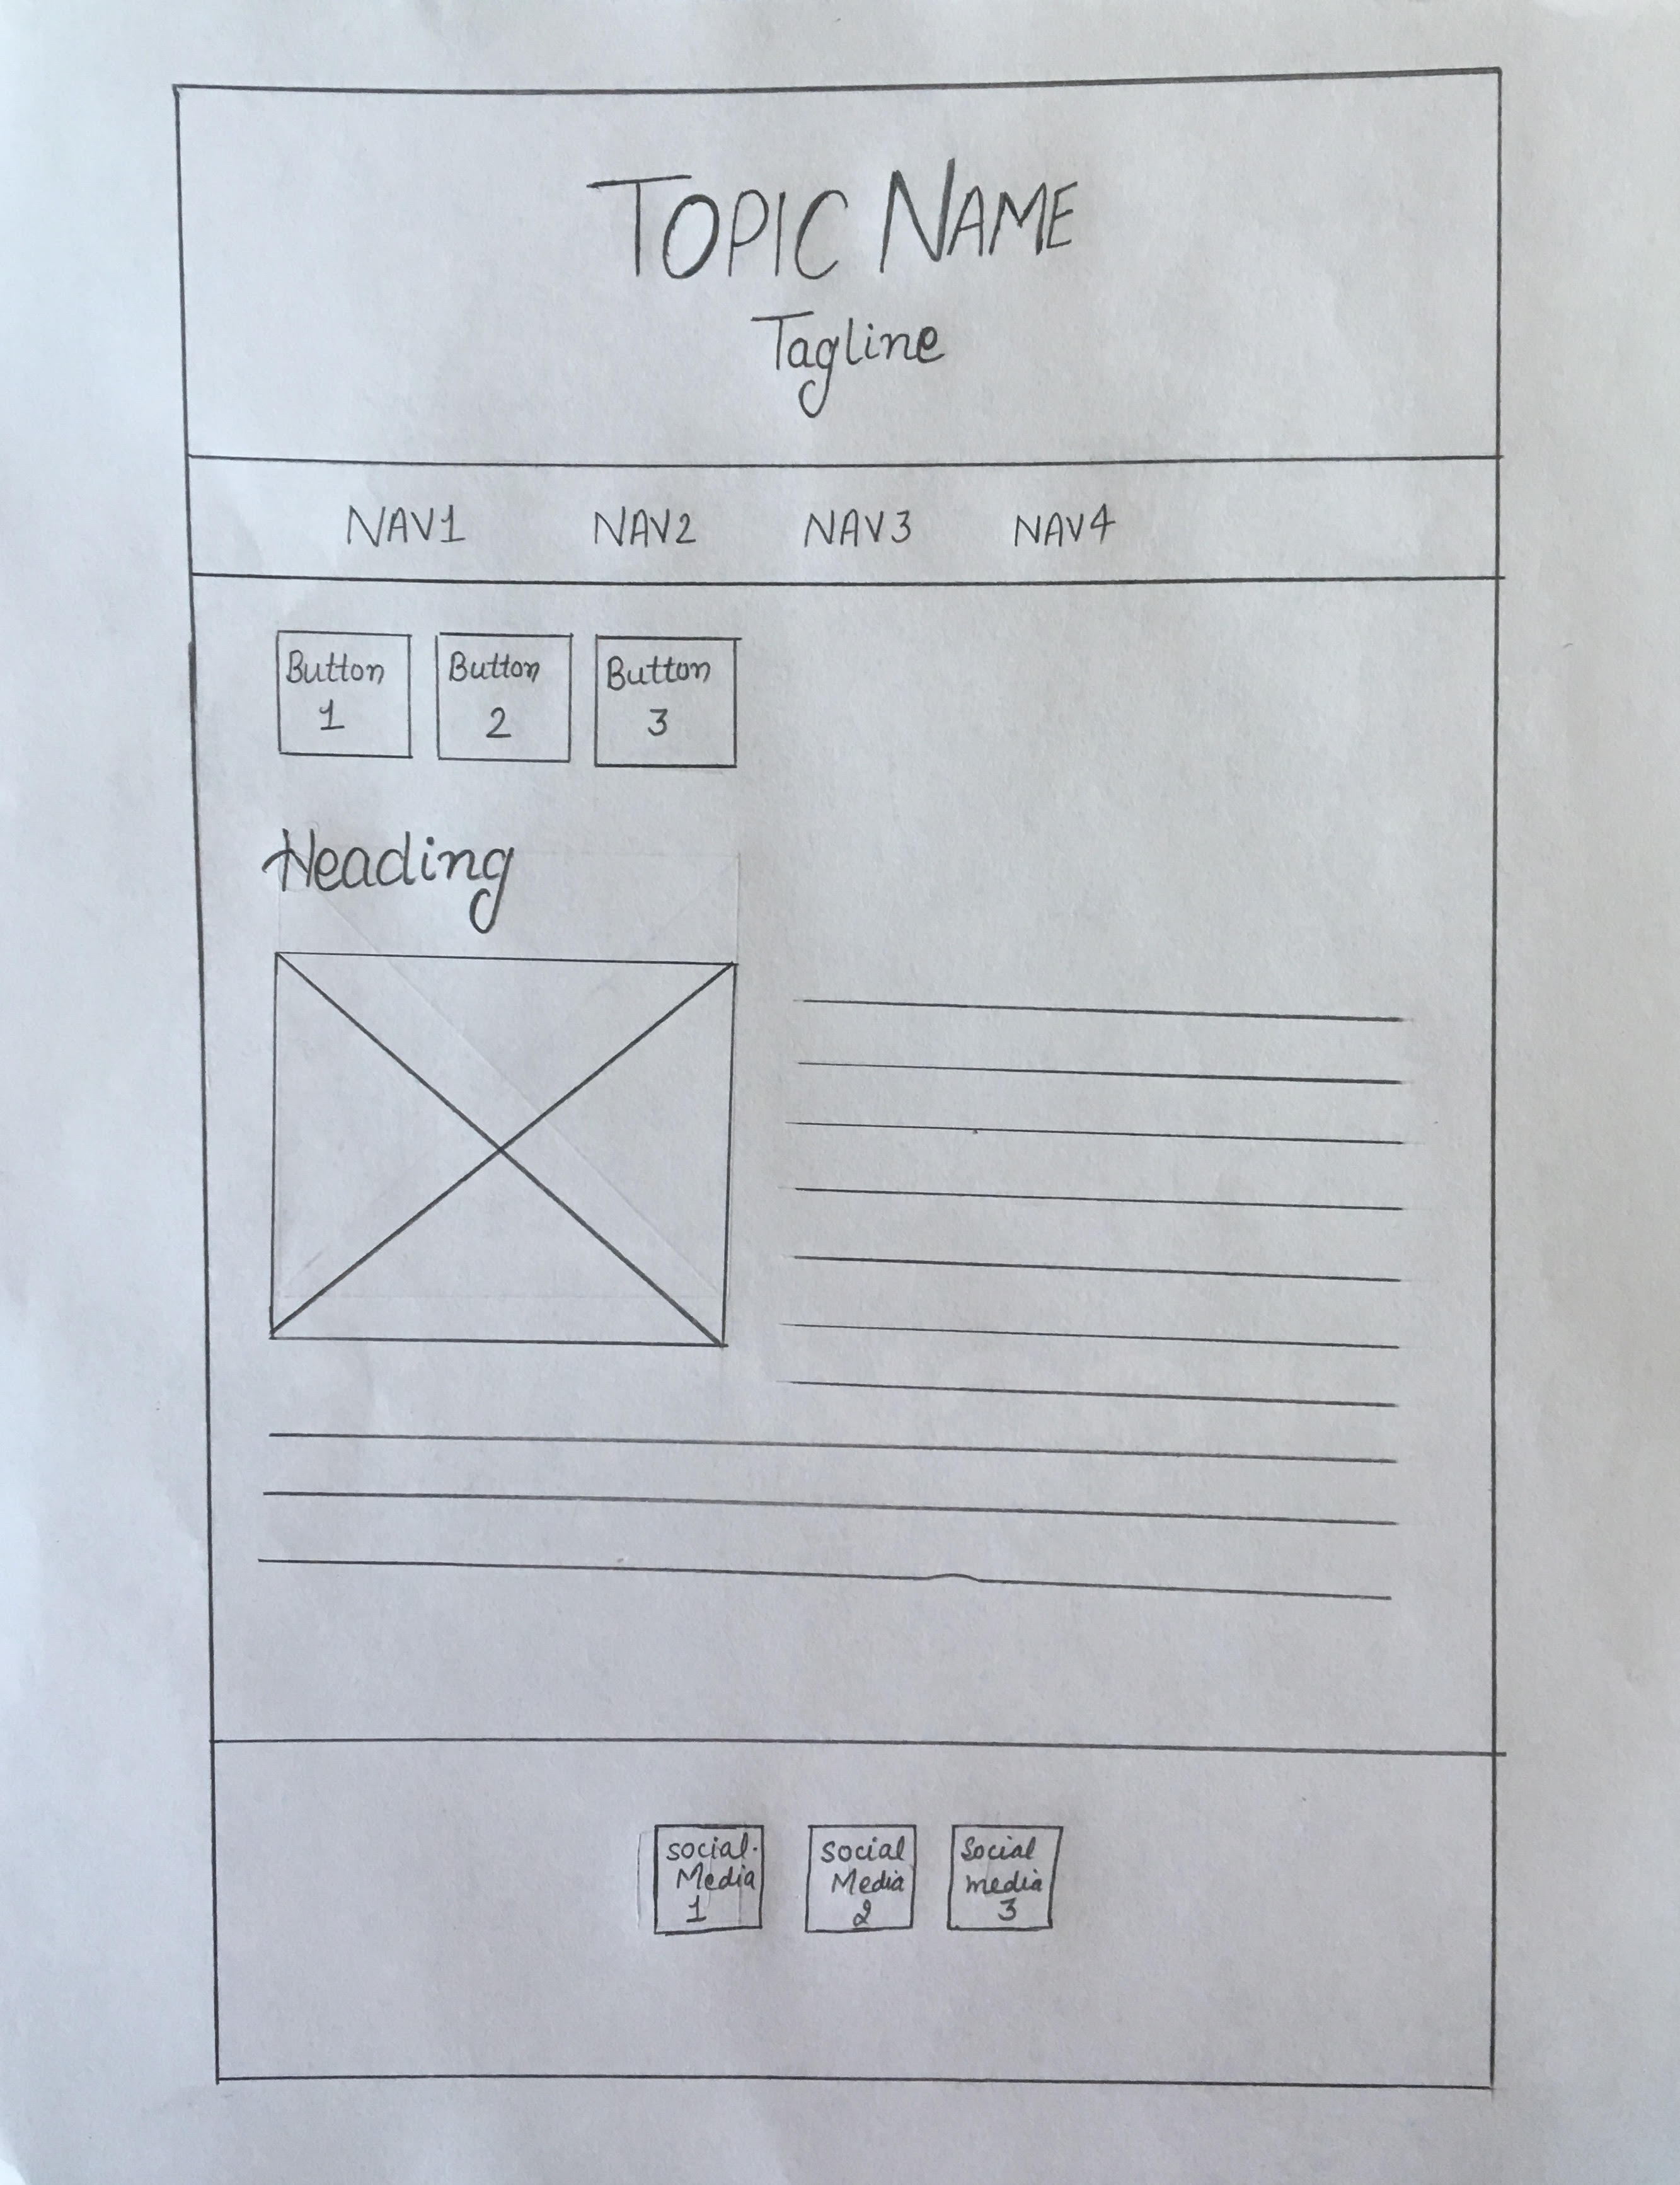 TOPIC NAME
Tagline
NAV1 NAV2 NAV3 NAV4
Button
1
Button
2
Button
3
Heading
social.
Media
1
Social
Media
2
Social
media
3